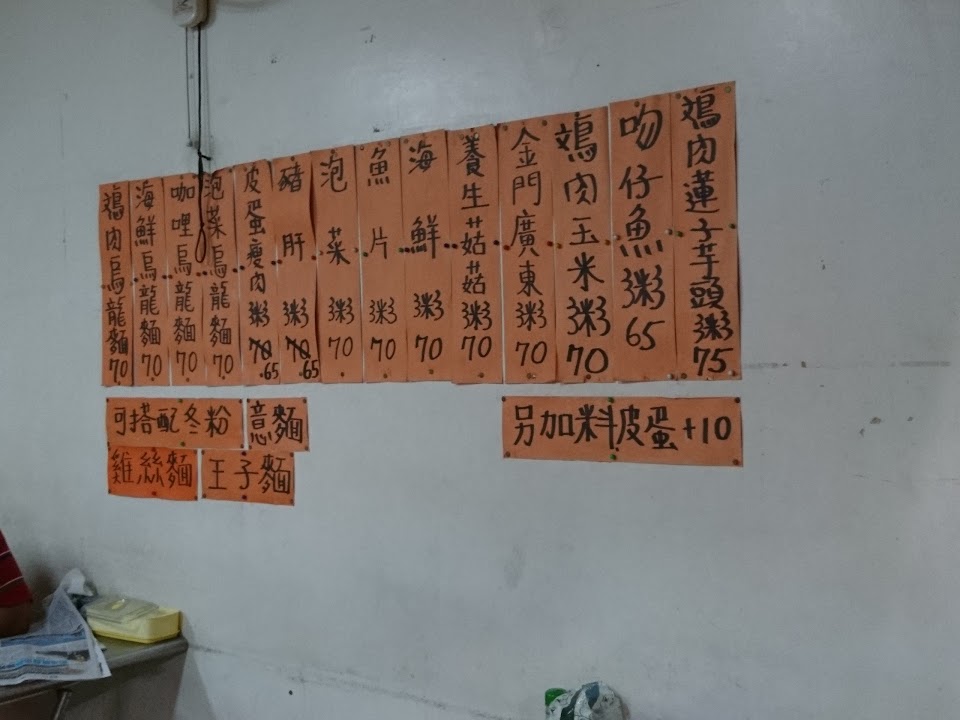 鷄肉蓮子芋頭粥75
吻仔魚粥65
鷄肉玉米粥70
金門廣東粥70
養生菇菇粥70
海鮮粥70
魚片粥70
泡菜粥70
豬肝粥70 65
皮蛋瘦肉粥70 65
泡菜烏龍麵70
咖哩烏龍麵70
海鮮烏龍麵70
鷄肉烏龍麵70
可搭配冬粉 意麵
雞絲麵 王子麵
另加料皮蛋+10